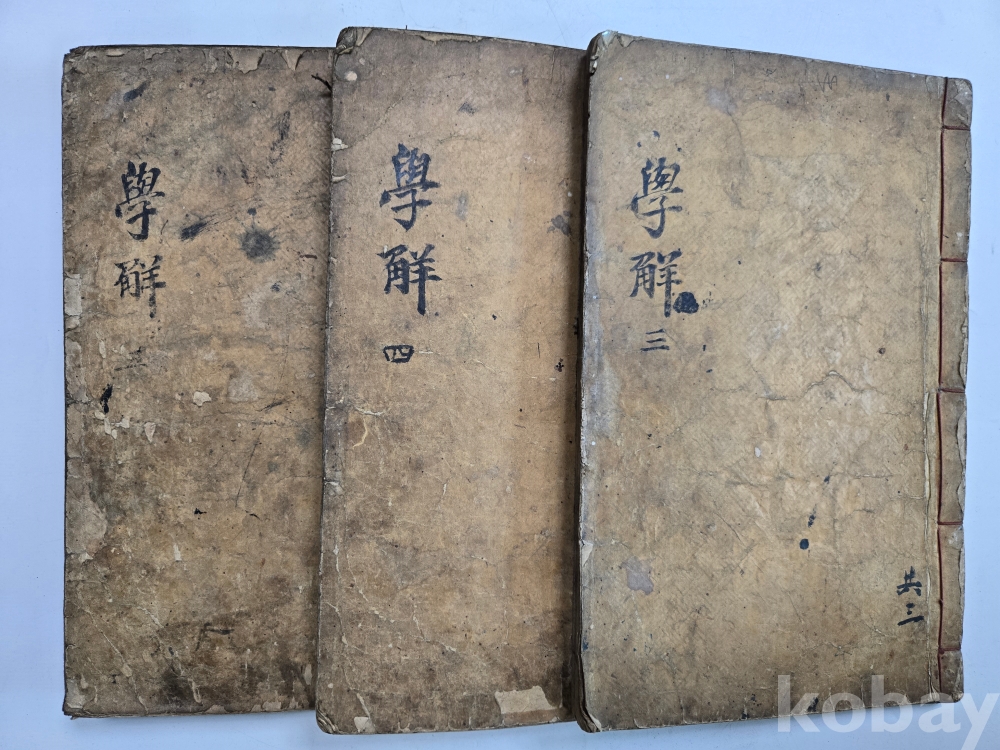 學觧
學觧 四
學觧 三
共三
kobay